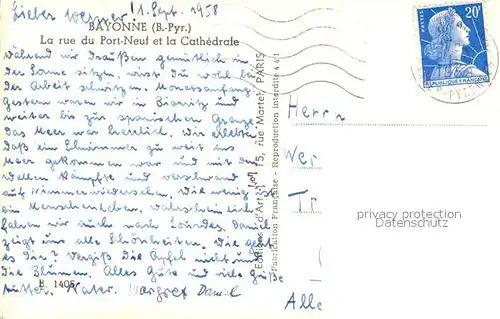 Lieber Wegner! 1. Sept. 1958
BAYONNE (B.-Pyr.)
La rue du Port-Neuf et la Cathédrale
während wir draußen gemütlich in
der Sonne sitzen, wirst Du wohl bei
der Arbeit schwitzen. Monatsanfang.
Gestern waren wir in Biaritz und
weiter bis zur spanischen Grenze.
Das Meer war herrlich. Wir erlebten
daß ein Schwimmer zu weit ins
Meer gekommen war und mit den
Wellen kämpfte und verschwand
auf Nimmerwiedersehen. Wie wenig ist
ein Menschenleben. Wahrscheinlich
fahren wir auch nach Lourdes, Daniel
zeigt uns alle Schönheiten. Wie geht
es Dir? Vergiß die Äpfel nicht und
die Blumen. Alles Gute und viele Grüße
Mutter, Vater. Margret Daniel
B. 1405
Editions d'Art 15, rue Martel, PARIS
Fabrication Française - Reproduction interdite
POSTES
20F
REPUBLIQUE FRANÇAISE
Herrn
Wer
Tr
Alle
privacy protection
Datenschutz